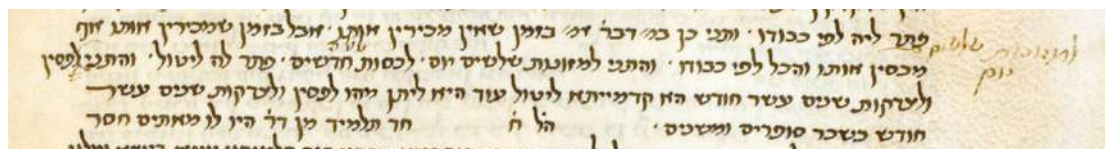 פתר ליה לפי כבודו · ותני כן במ׳ דבר׳ אמ׳ בזמן שאין מכירין אותו · אבל בזמן שמכירין אותו אף
מכסין אותו והכל לפי כבודו · והתני למזונות שלשים יום · לכסות ששה חדשים · פתר לה ליטול · והתני לפסין
ולצדקות שנים עשר חודש הא קדמייתא ליטול עוד היא ליתן מהו לפסין ולצדקות שנים עשר
חודש בשכר סופרים ומשנים · הל׳ ח׳ חד תלמיד מן דר׳ היו לו מאתים חסר
למזונות שלשים
יום